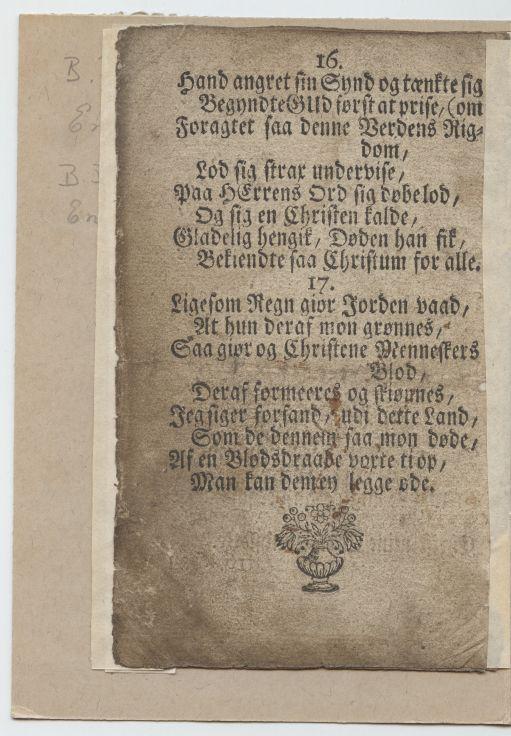 B.
16.
Hand angret sin Synd og tænkte sig
Begyndte GUd først at prise, (om
Foragtet saa denne Verdens Rig-
dom,
Lod sig strax undervise,
Paa HErrens Ord sig døbe lod,
Og sig en Christen kalde,
Gladelig hengik, Døden han fik,
Bekiendte saa Christum for alle.
17.
Ligesom Regn giør Jorden vaad,
At hun deraf mon grønnes,
Saa giør og Christene Menneskers
Blod,
Deraf formeeres og skiønnes,
Jeg siger forsand, udi dette Land,
Som de dennem saa mon døde,
Af en Blodsdraabe voxte ti op,
Man kan dem ey legge øde.